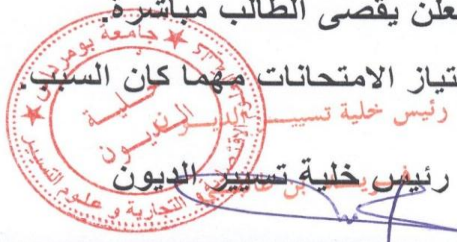 علن يقصى الطالب مباشرة.
تياز الامتحانات مهما كان السبب.
رئيس خلية تسيير
رئيس خلية تسيير الديون
جامعة بومرداس
خلية
الديون
التجارية و علوم التسيير